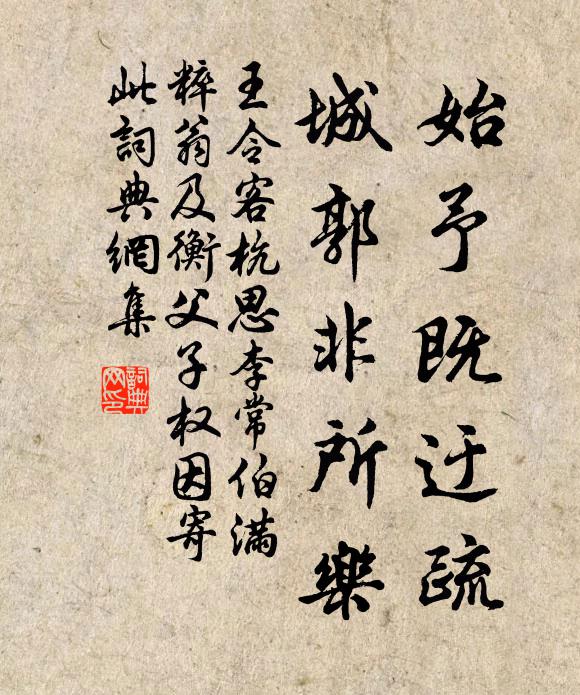 始予既迂疏
城郭非所樂
王令客杭思李常伯满
粹翁及衡父子权因寄
此詞典網集
詞典網印